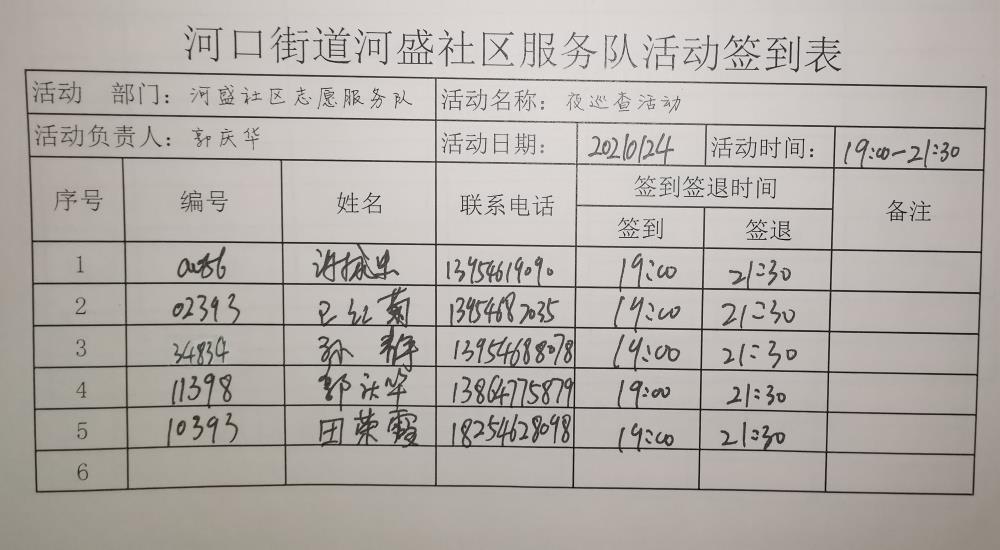 河口街道河盛社区服务队活动签到表
活动 部门：河盛社区志愿服务队 活动名称：夜巡查活动
活动负责人：郭庆华 活动日期： 20210124 活动时间： 19:00-21:30
序号 编号 姓名 联系电话 签到签退时间 备注
签到 签退
1 13954619090 19:00 21:30
2 02393 红菊 1395468 19:00 21:30
3 34834 孙 13954688078 19:00 21:30
4 11398 郭庆华 13864775879 19:00 21:30
5 10393 田荣霞 18254628098 19:00 21:30
6